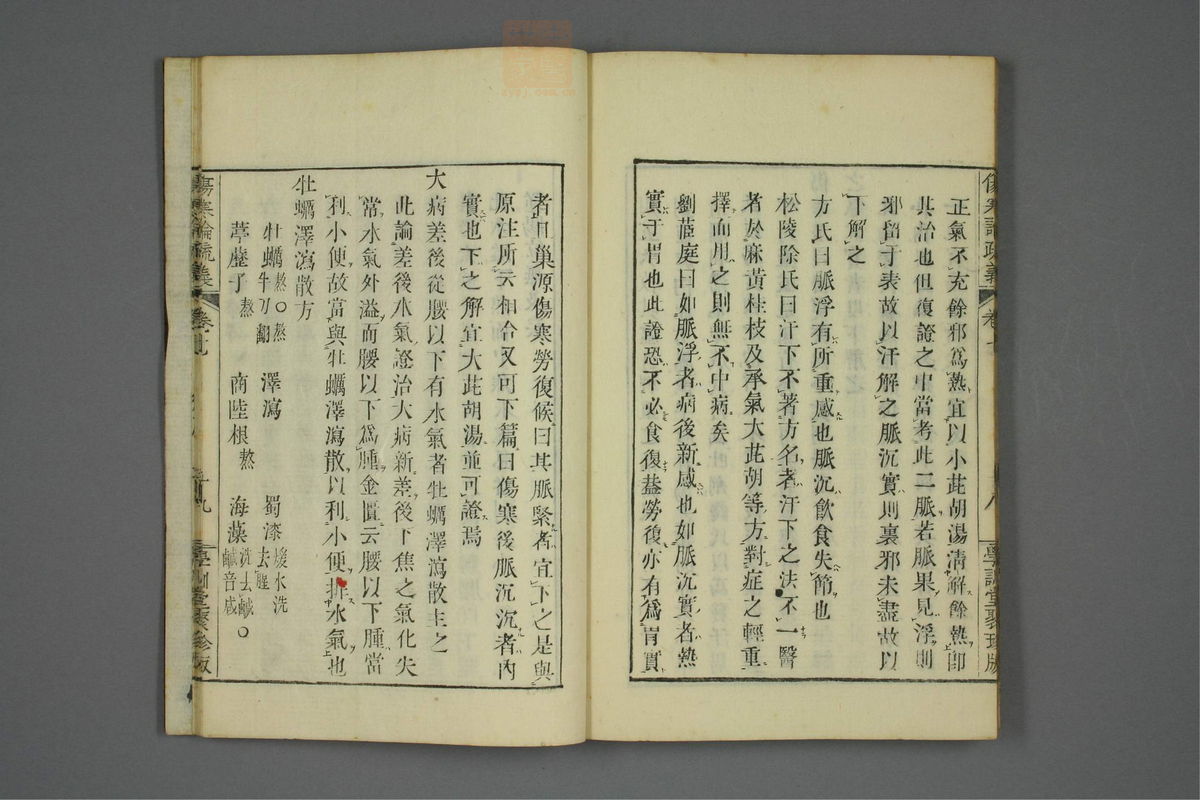 正氣不充餘邪爲熱宜以小茈胡湯清解餘熱卽
其治也但復證之中當考此二脈若脈果見浮則
邪留于表故以汗解之脈沉實則裏邪未盡故以
下解之
方氏曰脈浮有所重感也脈沉飲食失節也
松陵除氏曰汗下不著方名者汗下之法不一醫
者於麻黃桂枝及承氣大茈胡等方對症之輕重
擇而用之則無不中病矣
劉茝庭曰如脈浮者病後新感也如脈沉實者熱
實于胃也此證恐不必食復葢勞復亦有爲胃實
者且巢源傷寒勞復候曰其脈緊者宜下之是與
原注所云相合又可下篇曰傷寒後脈沉沉者內
實也下之解宜大茈胡湯並可證焉
大病差後從腰以下有水氣者牡蠣澤瀉散主之
此論差後水氣證治大病新差後下焦之氣化失
常水氣外溢而腰以下爲腫金匱云腰以下腫當
利小便故當與牡蠣澤瀉散以利小便排水氣也
牡蠣澤瀉散方
牡蠣熬 澤瀉 蜀漆煖水洗去腥
葶藶子熬 商陸根熬 海藻洗去鹹
傷寒論疏義 卷七 八 學訓堂聚珍版
傷寒論疏義 卷七 十九 學訓堂聚珍版